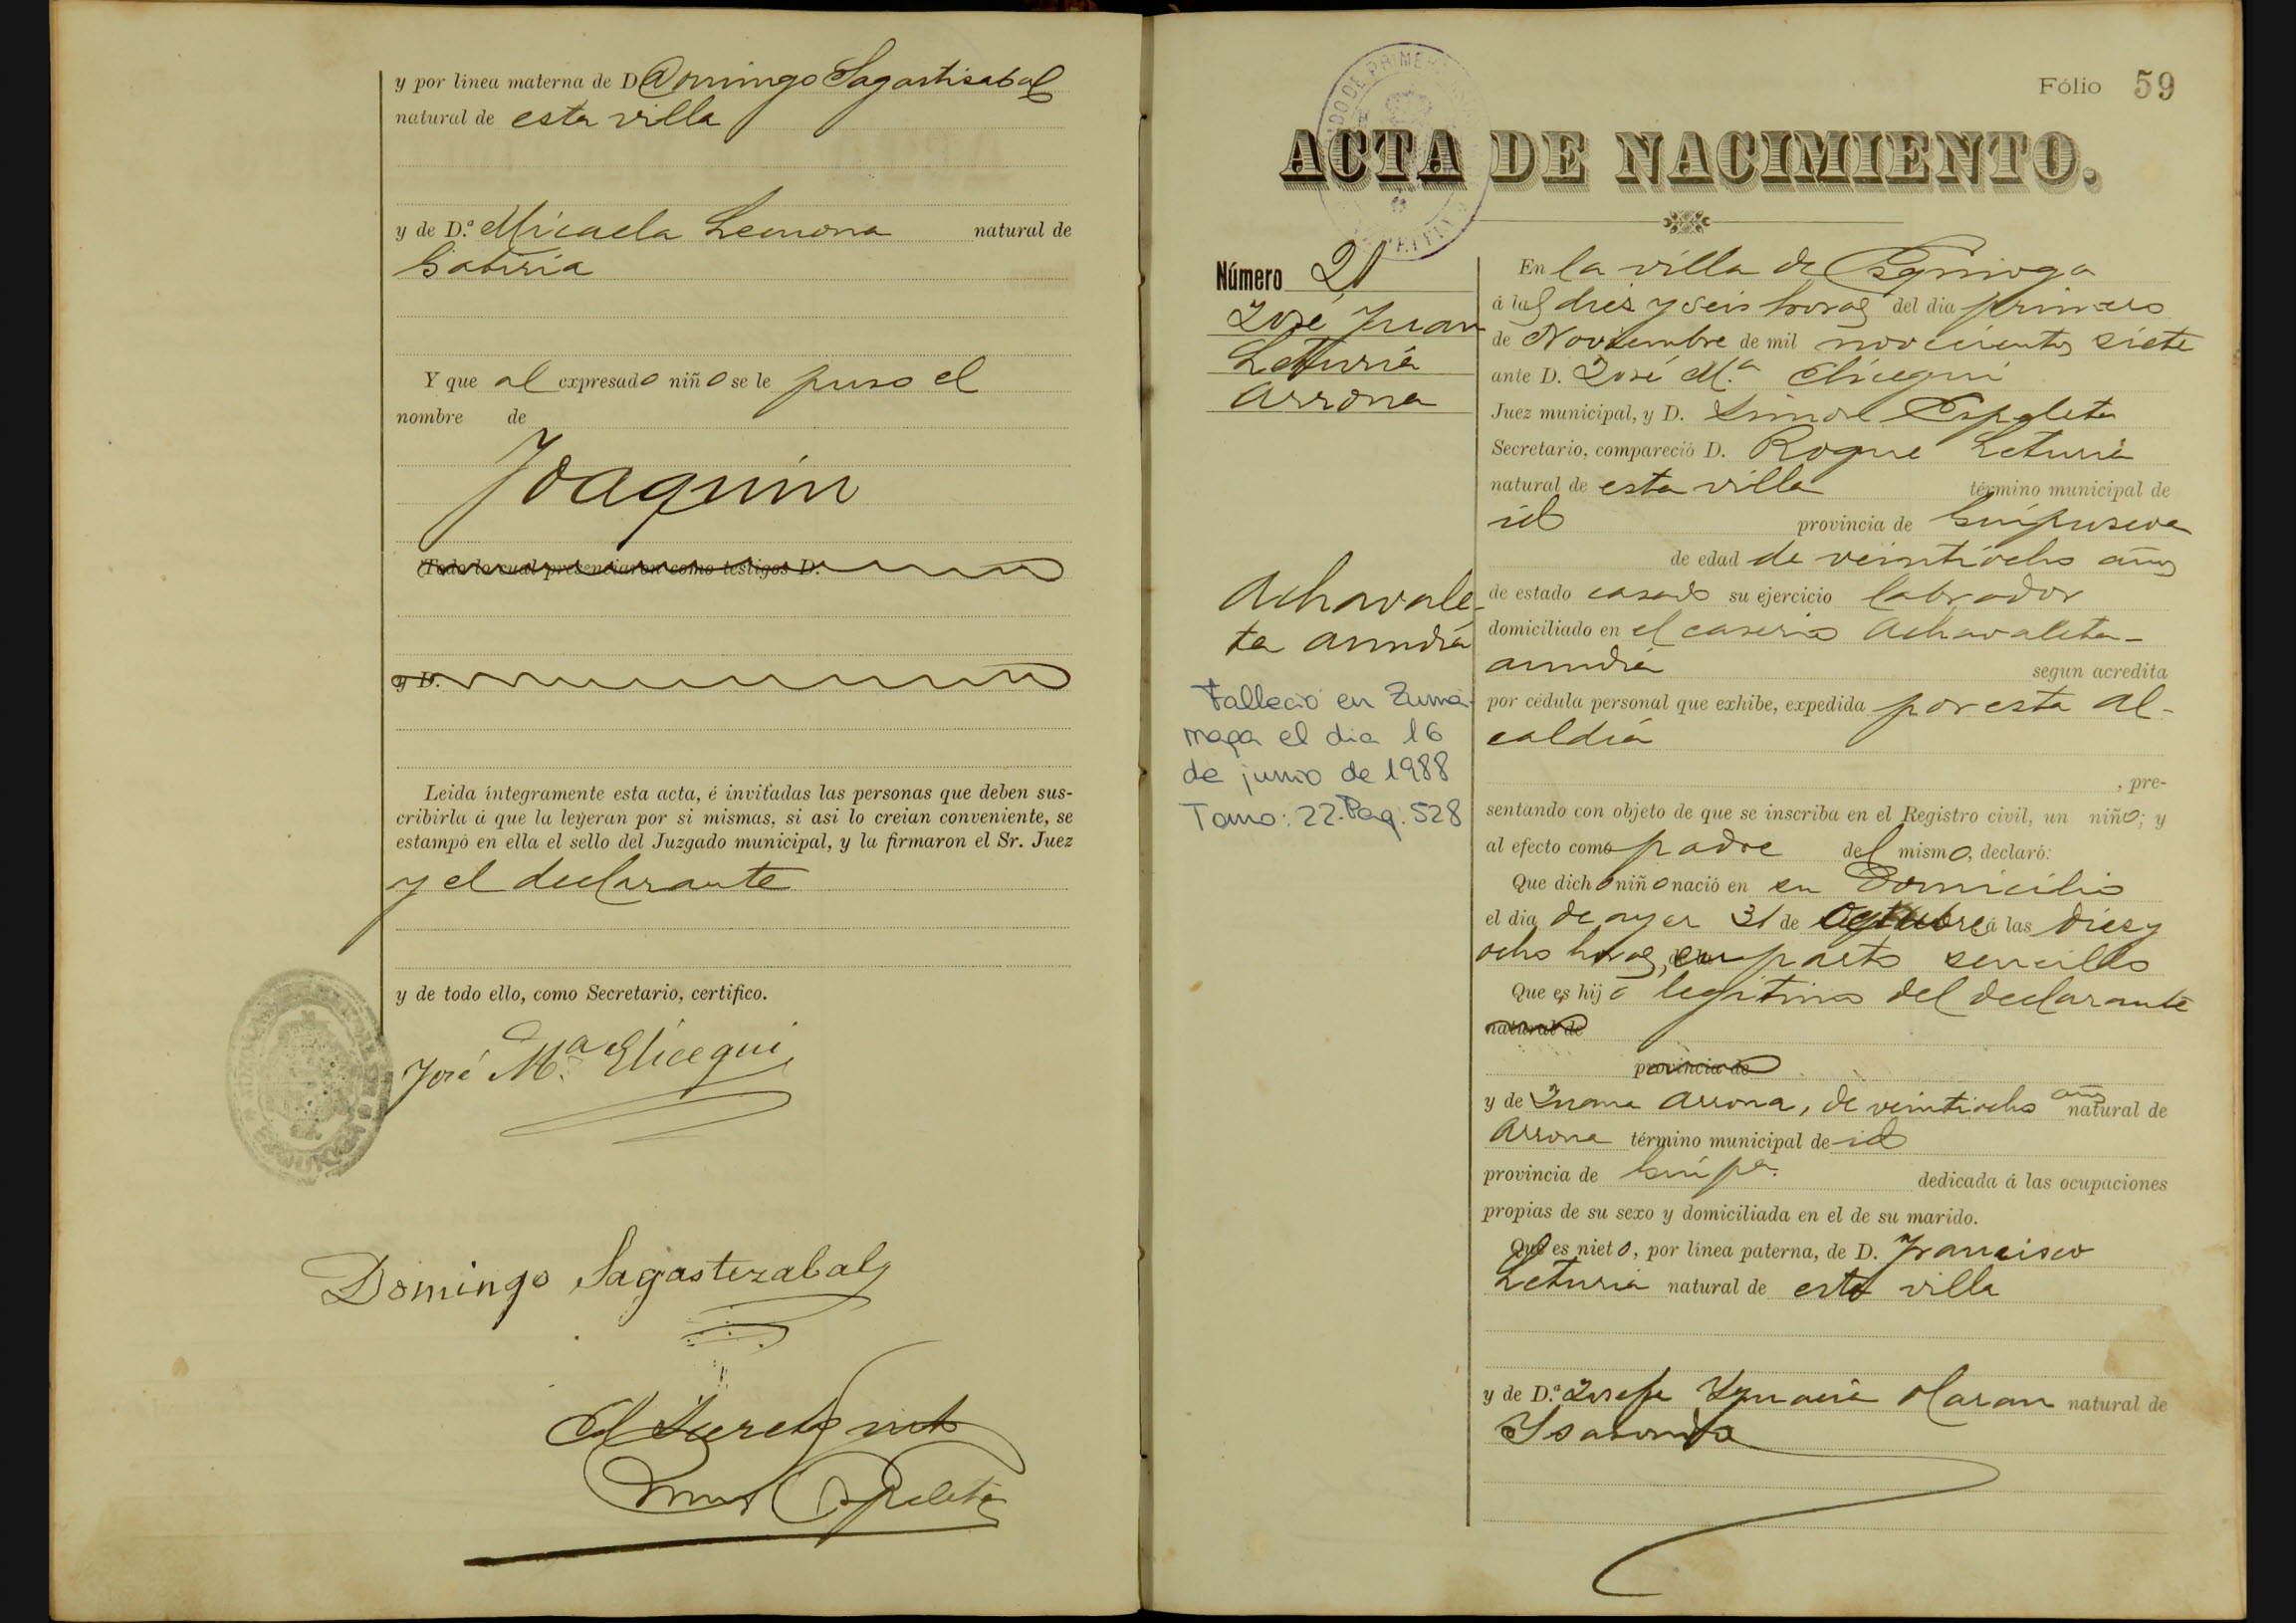 y por línea materna de D Domingo Sagastisabal
natural de esta villa
y de D.ª Micaela Lemona natural de
Gabiria
Y que al expresado niño se le puso el
nombre de
Joaquin
Todo lo cual presenciaron como testigos D.
y D.
Leida íntegramente esta acta, é invitadas las personas que deben sus-
cribirla á que la leyeran por si mismas, si asi lo creian conveniente, se
estampó en ella el sello del Juzgado municipal, y la firmaron el Sr. Juez
y el declarante
y de todo ello, como Secretario, certifico.
José Mª Elicegui
Domingo Sagastizabal
El Secretº
Espeleta
Fólio 59
ACTA DE NACIMIENTO.
Número 21
José Juan
Leturia
Arrona
Achavale-
ta aundia
Falleció en Zuma-
rraga el dia 16
de junio de 1988
Tomo: 22. Pag. 528
En la villa de Ezquioga
á las dies y seis horas del dia primero
de Noviembre de mil novecientos siete
ante D. José M.ª Elicegui
Juez municipal, y D. Simon Espeleta
Secretario, compareció D. Roque Leturia
natural de esta villa término municipal de
id provincia de Guipuscoa
de edad de veintiocho años
de estado casado su ejercicio labrador
domiciliado en el caserio Achavaleta-
aundia segun acredita
por cédula personal que exhibe, expedida por esta al-
caldia
, pre-
sentando con objeto de que se inscriba en el Registro civil, un niño; y
al efecto como padre del mismo, declaró:
Que dicho niño nació en su domicilio
el dia de ayer 31 de Octubre á las dies y
ocho horas, en parto sencillo
Que es hijo legitimo del declarante
natural de
provincia de
y de Juana Arrona, de veintiocho años natural de
Arrona término municipal de id
provincia de Guipª. dedicada á las ocupaciones
propias de su sexo y domiciliada en el de su marido.
Que es nieto, por línea paterna, de D. Francisco
Leturia natural de esta villa
y de D.ª Josefa Ygnacia Olaran natural de
Ysasondo